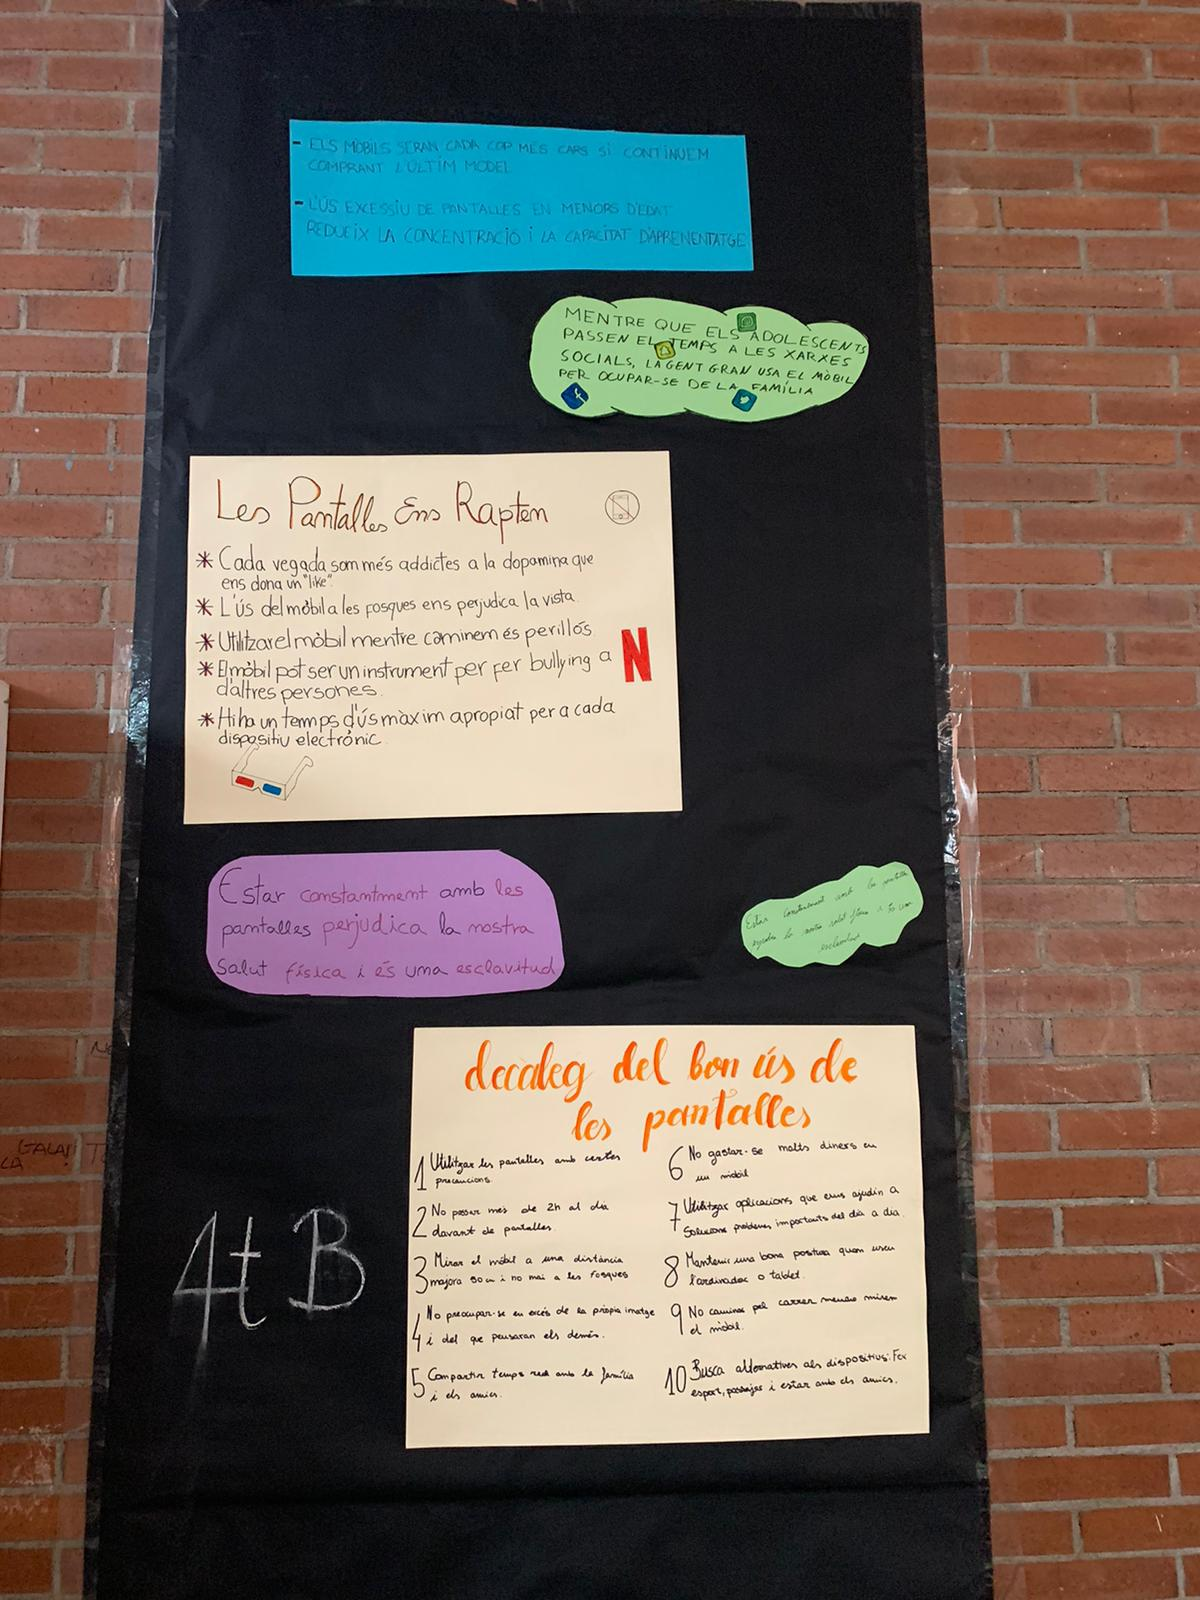 - ELS MÒBILS SERAN CADA COP MÉS CARS SI CONTINUEM
COMPRANT L'ÚLTIM MODEL
- L'ÚS EXCESSIU DE PANTALLES EN MENORS D'EDAT
REDUEIX LA CONCENTRACIÓ I LA CAPACITAT D'APRENENTATGE
MENTRE QUE ELS ADOLESCENTS
PASSEN EL TEMPS A LES XARXES
SOCIALS, LA GENT GRAN USA EL MÒBIL
PER OCUPAR-SE DE LA FAMÍLIA
Les Pantalles Ens Rapten
* Cada vegada som més addictes a la dopamina que
ens dona un "like".
* L'ús del mòbil a les fosques ens perjudica la vista.
* Utilitzar el mòbil mentre caminem és perillós.
* El mòbil pot ser un instrument per fer bullying a
d'altres persones.
N
* Hi ha un temps d'ús màxim apropiat per a cada
dispositiu electrònic.
Estar constantment amb les
pantalles perjudica la nostra
salut física i és una esclavitud
Estar constantment amb les pantalles
la nostra salut física i és una
esclavitud
decàleg del bon ús de
les pantalles
1 Utilitzar les pantalles amb certes
precaucions.
2 No passar més de 2h al dia
davant de pantalles.
3 Mirar el mòbil a una distància
majora 50cm i no mai a les fosques
4 No preocupar-se en excés de la pròpia imatge
i del que pensaran els demés.
5 Compartir temps real amb la família
i els amics.
6 No gastar-se molts diners en
un mòbil
7 Utilitzar aplicacions que ens ajudin a
Solucions problemes importants del dia a dia.
8 Mantenir una bona postura quan useu
l'ordinador o tablet.
9 No caminar pel carrer mentre mirem
el mòbil.
10 Busca alternatives als dispositius: Fer
esport, passejar i estar amb els amics.
4t B
GALA